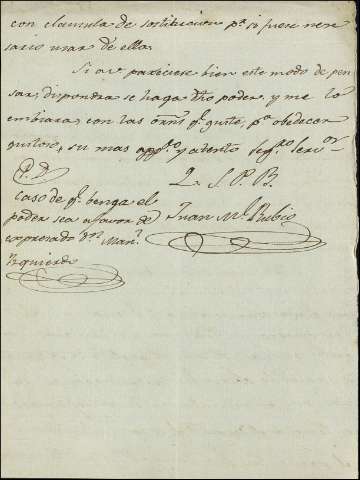 con clausula de sostitucion pª si fuese nece
sario usar de ella.
Si a v. pareciese bien este modo de pen
sar, dispondra se haga dho poder, y me lo
embiara, con las ornˢ qᵉ guste, pª obedecer
gustoso, su mas apdᵗᵒ y atento segᵗᵒ servᵒʳ
Q. S. M. B.
P. D.
Juan Mˡ Rubio
Caso de qᵉ benga el
poder sea a favor de
expresado Dⁿ Manˡ
Yzquierdo